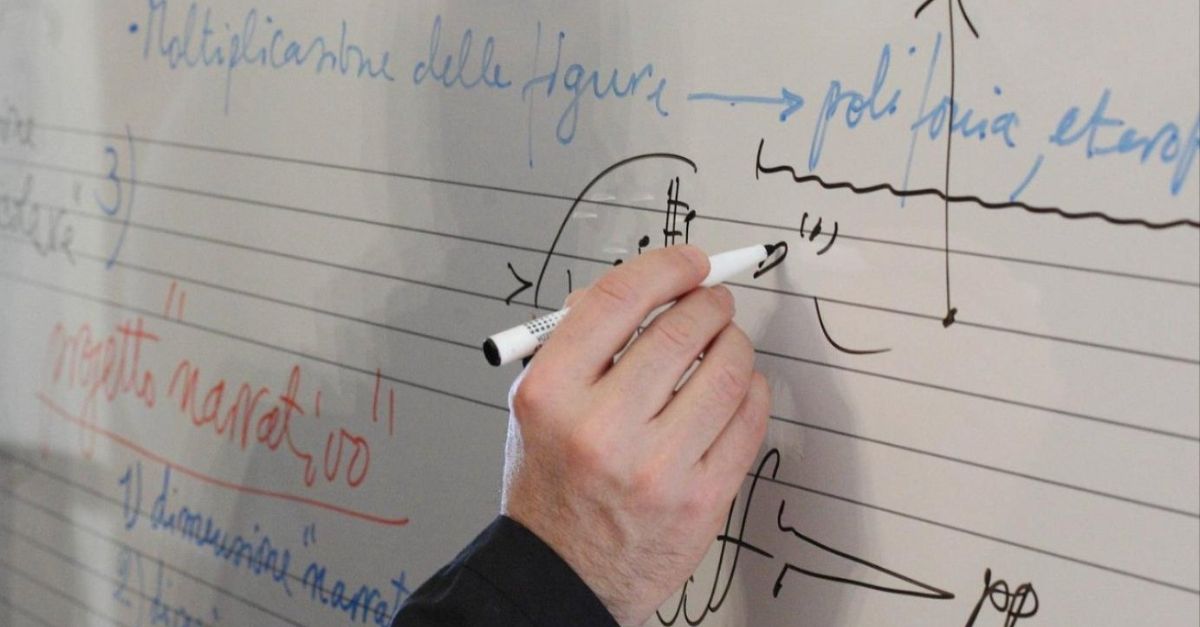 • Moltiplicazione delle figure → polifonia, eterof
3)
progetto "narrativo"
1) dimensione "narrat
2)
pp